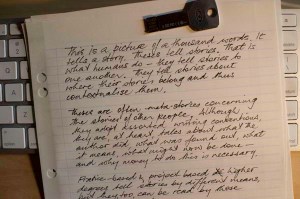 This is a picture of a thousand words. It
tells a story. Theses tell stories. That is
what humans do – they tell stories to
one another. They tell stories about
where their stories belong and thus
contextualise them.
These are often meta-stories concerning
the stories of other people. Although,
they adopt writing conventions,
they are, at least, tales about what the
author did, what was found out, what
it means, what might now be done –
and why money to do this is necessary.
Practice-based & project based & higher
degrees tell stories by different means,
but they too, can be read by those